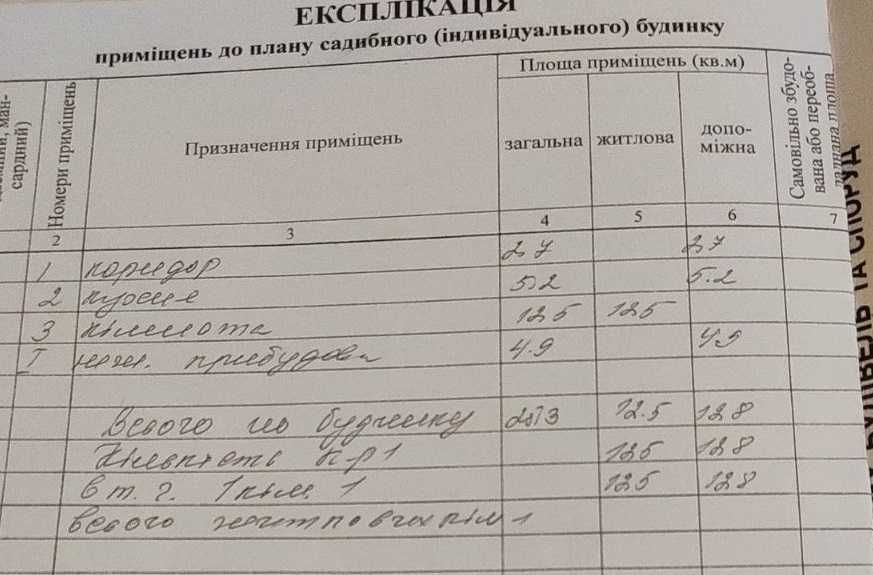 ЕКСПЛІКАЦІЯ
приміщень до плану садибного (індивідуального) будинку
сардний)
Номери приміщень
Призначення приміщень
Площа приміщень (кв.м)
загальна житлова допо-
міжна
Самовільно збудо-
вана або переоб-
ладнана площа
2 3 4 5 6 7
1 коридор 2.7 2.7
2 кухня 5.2 5.2
3 кімната 12.5 12.5
I прибудова 4.9 4.9
Всього по будинку 25.3 12.5 12.8
Кількість к-р 1 12.5 12.8
в т. г. 1 кім. 1 12.5 12.8
всього житлових кім 1
БУДІВЕЛЬ ТА СПОРУД